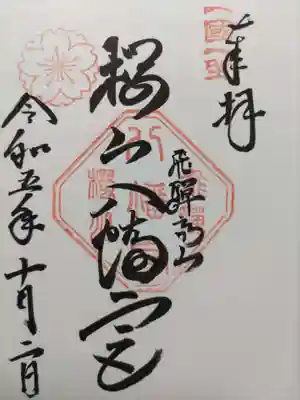 奉拝
飛騨高山
桜山八幡宮
令和五年十月二日